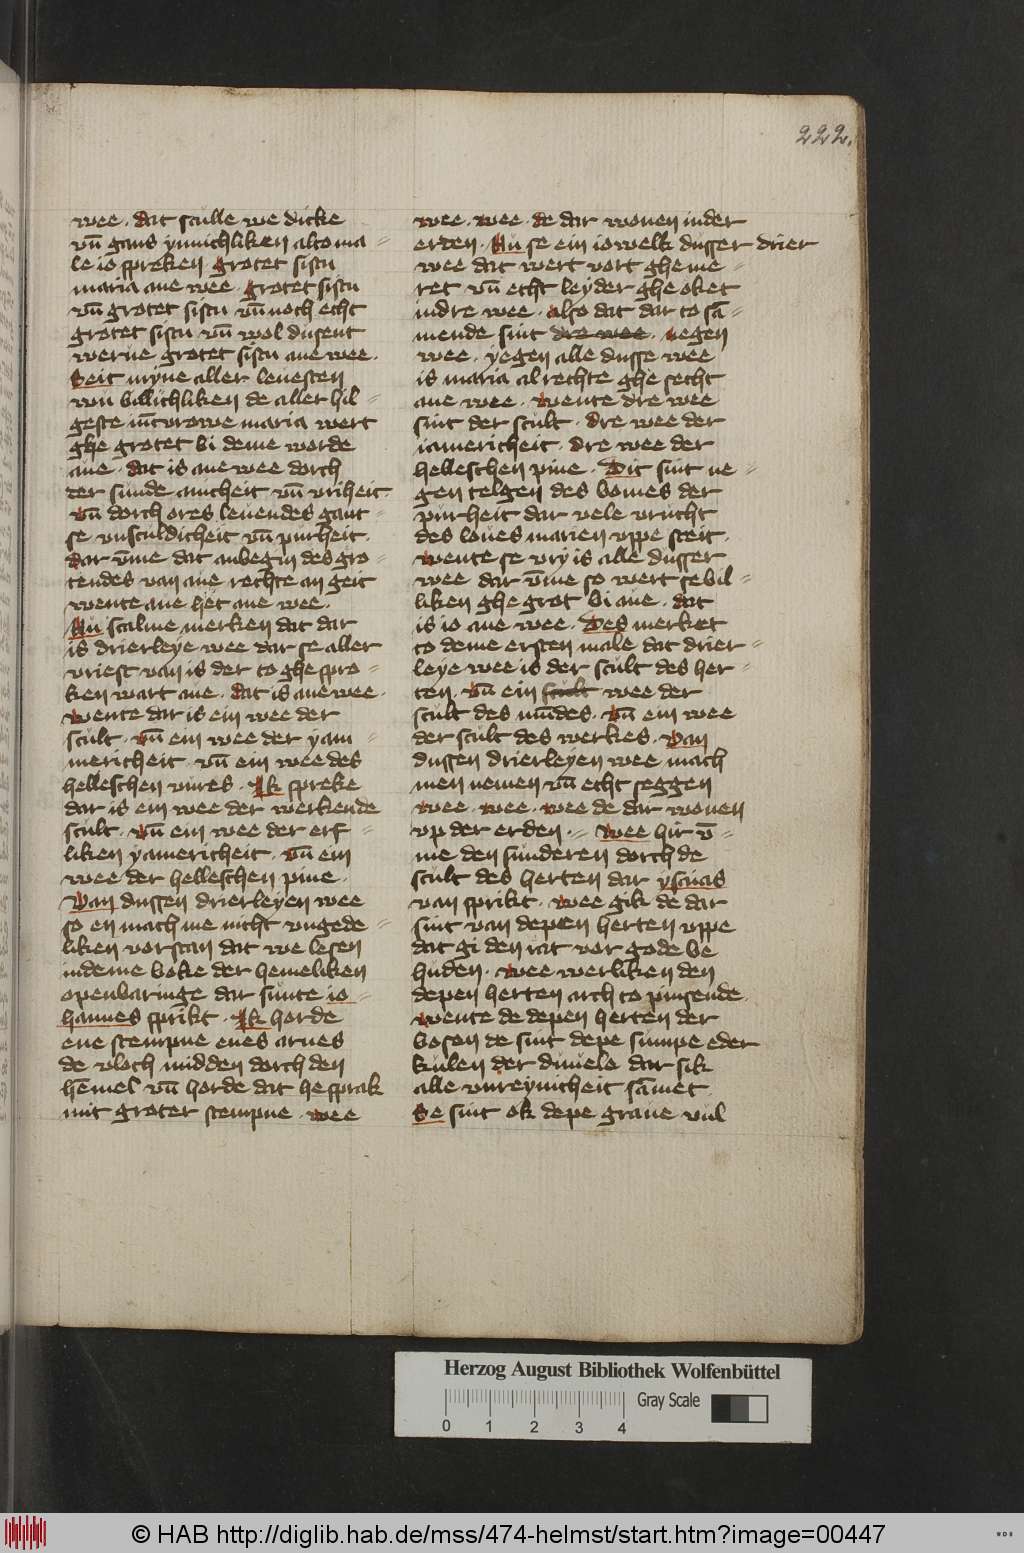 222.
wee · dat sculle we dicke
vn̄ gans ynnichliken alto ma⸗
le io spreken · grotet sistu
maria aue wee · grotet sistu
vn̄ grotet sistu · vn̄ noch echt
grotet sistu · vn̄ wol dusent
werue grotet sistu aue wee ·
Seit myne aller leuesten
wu billichliken de aller hil⸗
geste iūcvrowe maria wert
ghe grotet bi deme worde
aue · dat is aue wee dorch
der sunde anicheit vn̄ vriheit·
vn̄ dorch ores leuendes gant⸗
se vnsculdicheit vn̄ purheit·
dar v̄me dat anbegin des gro⸗
tendes van aue rechte an geit
wente aue het aue wee ·
Nu scalme merken dat dar
is drierleye wee dar se aller
vriest van is der to ghe spro⸗
ken wart aue · dat is aue wee ·
wente dar is ein wee der
scult · vn̄ ein wee der yam⸗
mericheit · vn̄ ein wee des
helleschen vures · Ik spreke
dar is ein wee der werkende
scult · vn̄ ein wee der erf⸗
liken yamericheit · vn̄ ein
wee der helleschen pine ·
Van dussen drierleyen wee
so en mach me nicht vngede⸗
liken vorstan dat we lesen
indeme boke der hemeliken
openbaringe dar sunte io⸗
hannes sprikt · Ik horde
ene stempne enes arnes
de vloch midden dorch den
hēmel vn̄ horde dat he sprak
mit groter stempne · wee
wee · wee · de dar wonen inder
erden · Nu se ein iowelk dusser drier
wee dat wert vort ghe me⸗
ret vn̄ echt leyder ghe oket
indre wee · also dat dar to sā⸗
mende sint dre wee · negen
wee · yegen alle dusse wee
is maria al rechte ghe secht
aue wee · wente dre wee
sint der scult · dre wee der
iamericheit · dre wee der
helleschen pine · Dit sint ne⸗
gen telgen des bomes der
purheit dar vele vrucht
des loues marien vppe steit ·
wente se vry is alle dusser
wee dar v̄me so wert se bil⸗
liken ghe grot bi aue · dat
is io aue wee · Des merket
to deme ersten male dat drier⸗
leye wee is der scult des her⸗
ten · vn̄ ein scult wee der
scult des mūdes · vn̄ ein wee
der scult des werkes · Van
dussen drierleyen wee mach
men nemen vn̄ echt seggen
wee · wee · wee de dar wonen
vp der erden ·⸗ wee hir v̄⸗
me den sunderen dorch de
scult des herten dar yscuas
van sprikt · wee gik de dar
sint van depen herten vppe
dat gi den rat vor gode be
huden · wee werliken den
depen herten arch to pinsende ·
wente de depen herten der
bosen de sint depe sumpe eder
kulen der duuele dar sik
alle vnreynicheit sāmet
Se sint ok depe graue vul
Herzog August Bibliothek Wolfenbüttel
0 1 2 3 4 Gray Scale
© HAB http://diglib.hab.de/mss/474-helmst/start.htm?image=00447